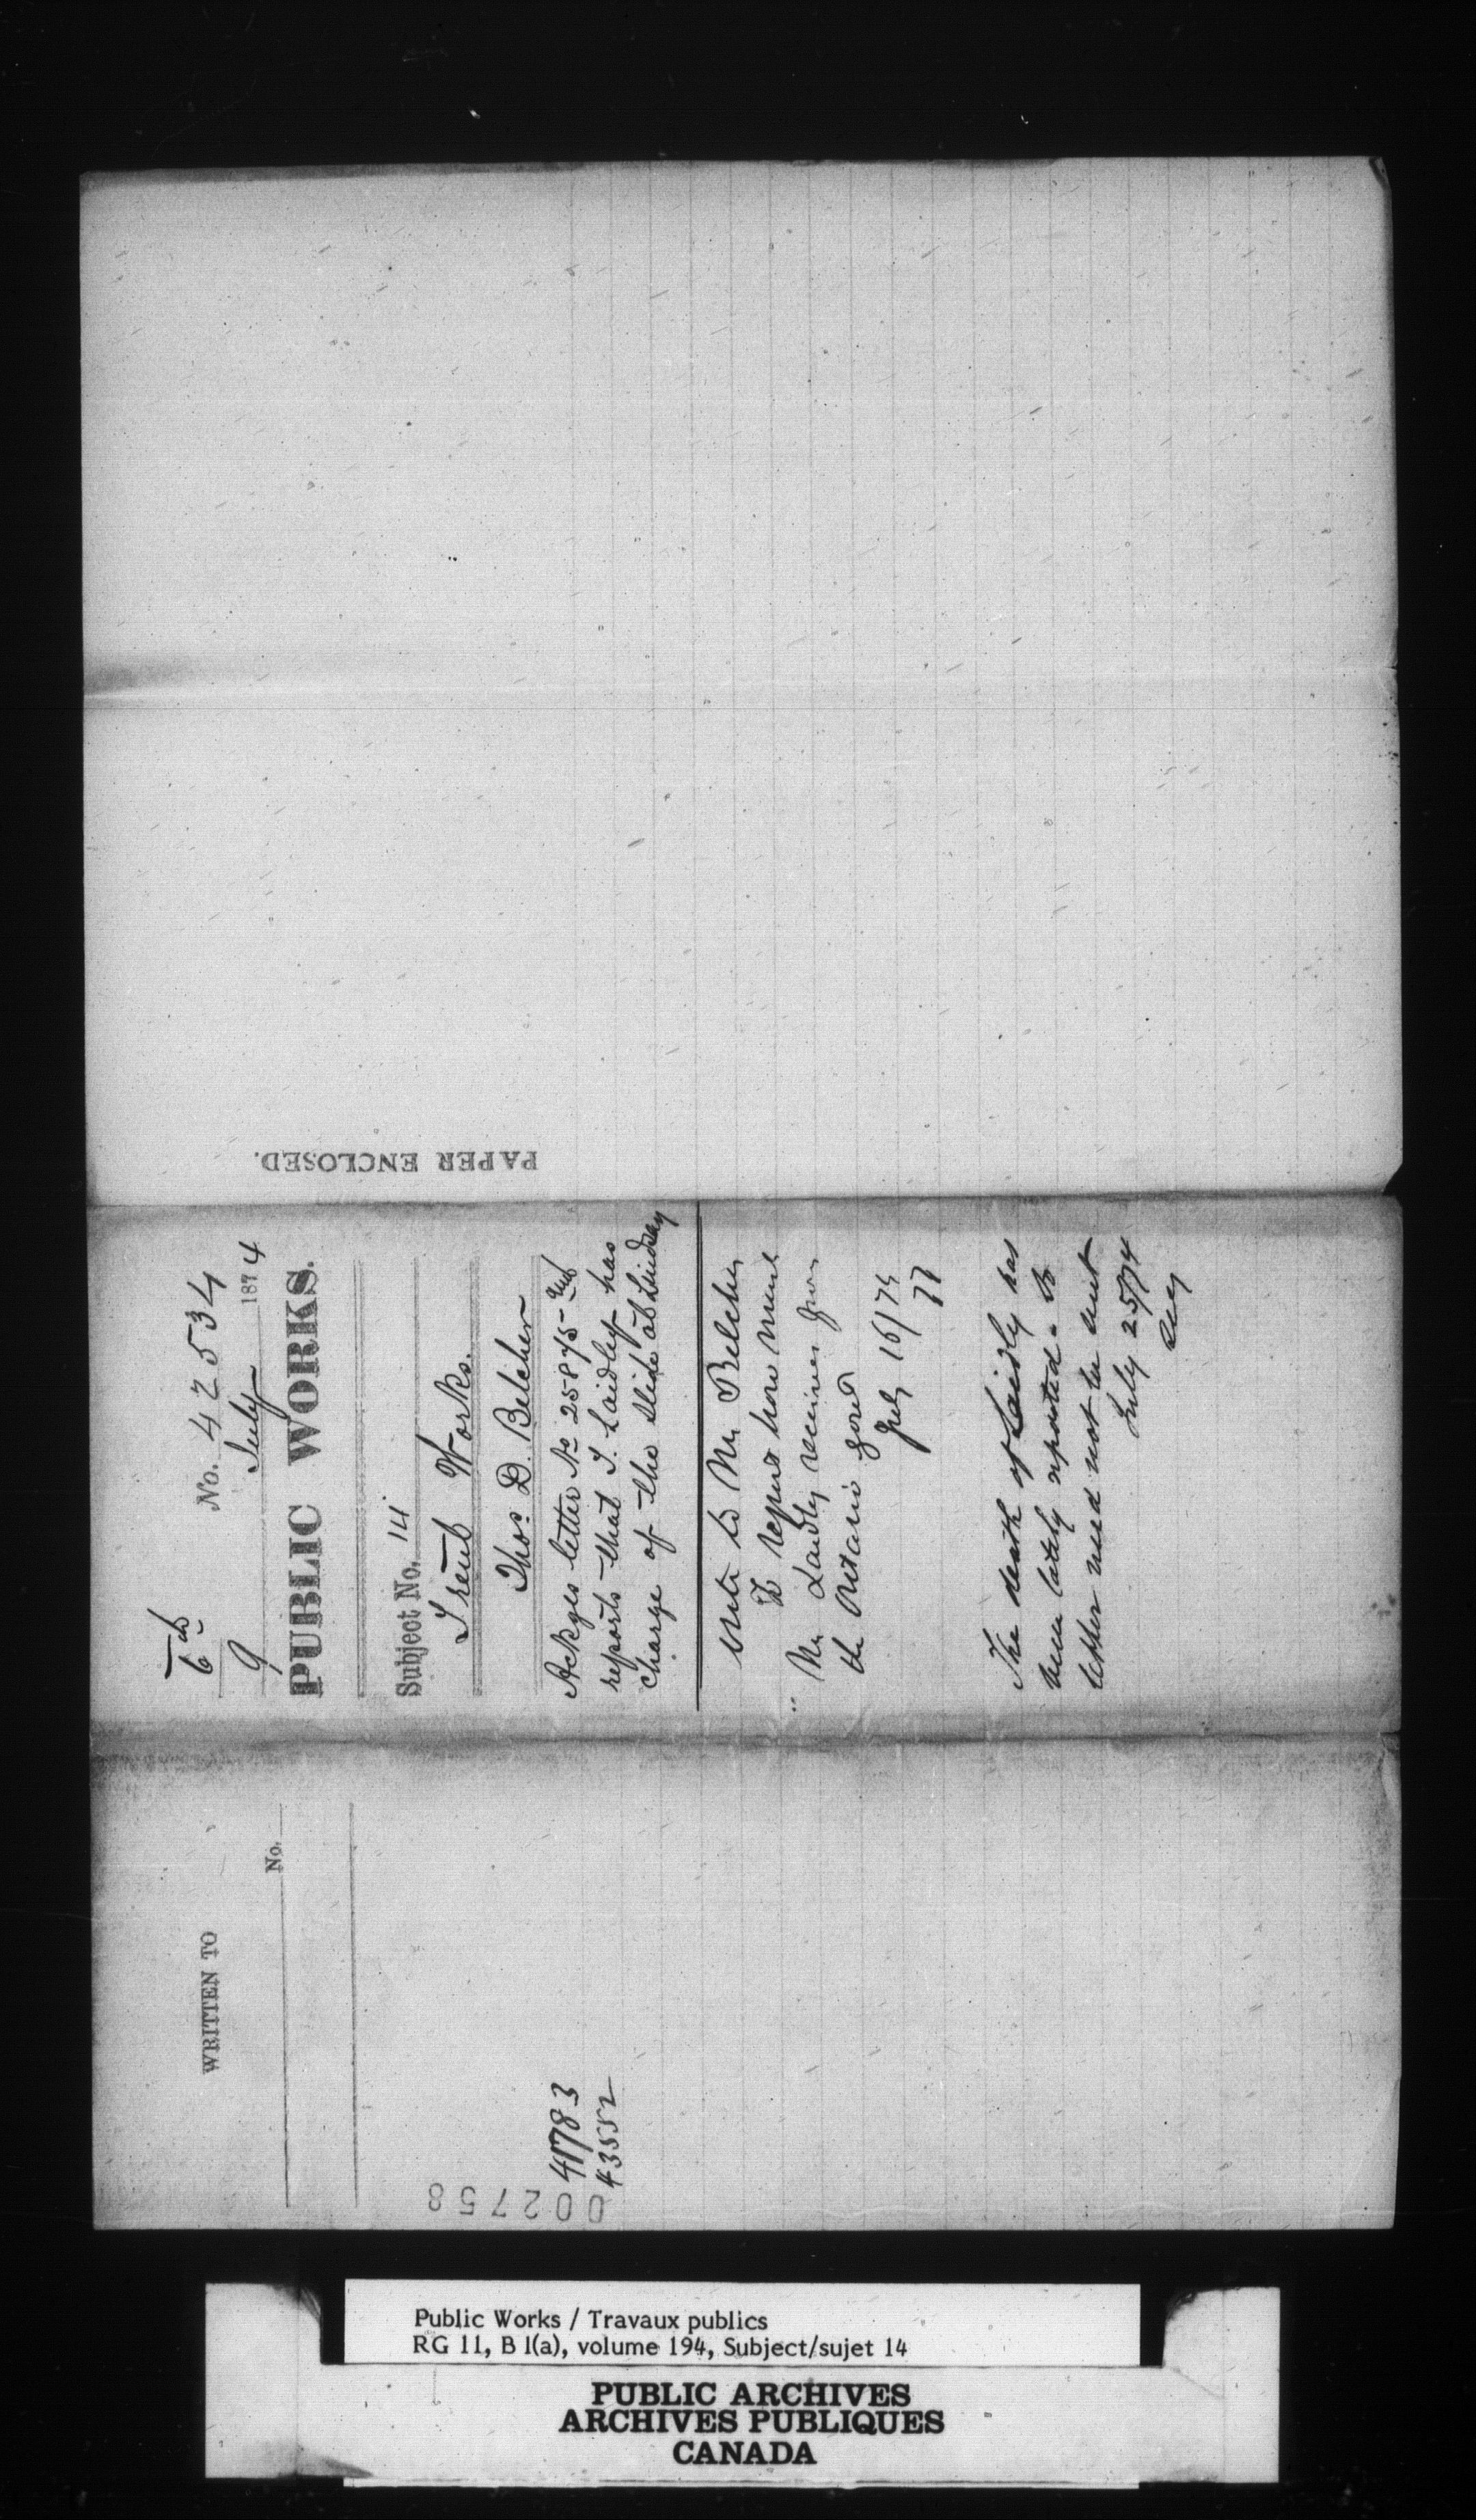 PAPER ENCLOSED.
6th No. 42534
9 July 1874
PUBLIC WORKS.
Subject No. 14
Trent Works.
Thos D. Belcher
Ackges letter No 25875 and
reports that J. Laidley has
charge of the slide at Lindsay
Write to Mr Belcher
To report how much
Mr Laidley receives from
the Ontario govt
July 16/74
The death of Laidley has
been lately reported. So
letter need not be sent
July 25/74
WRITTEN TO
No.
41783
43552
002758
Public Works / Travaux publics
RG 11, B 1(a), volume 194, Subject/sujet 14
PUBLIC ARCHIVES
ARCHIVES PUBLIQUES
CANADA